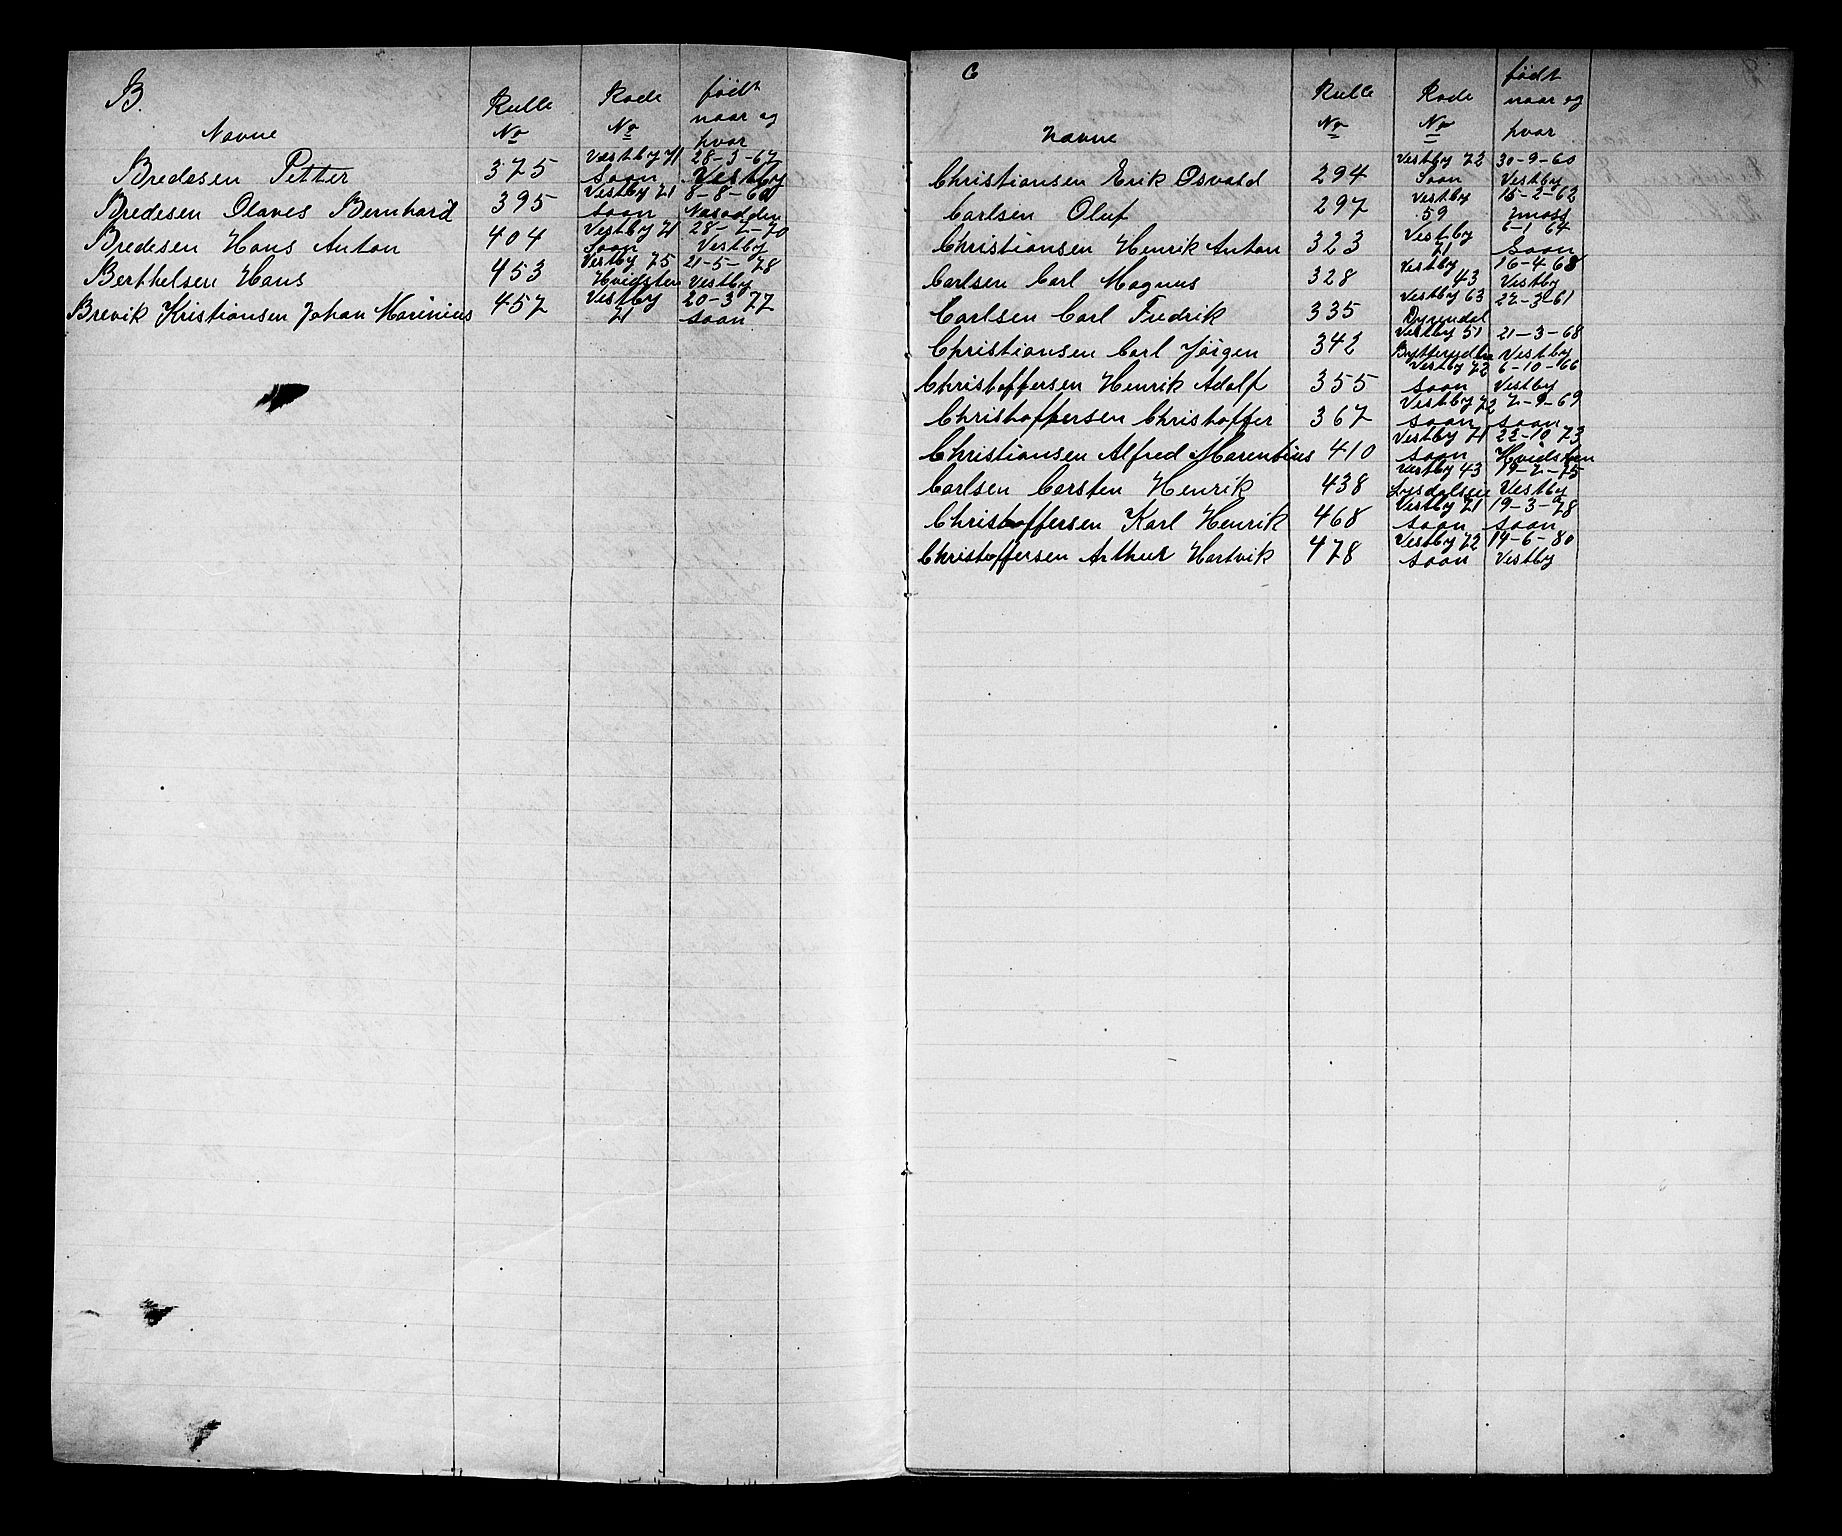 B.
Navne Rulle No Rode No født naar og hvor
Bredesen Petter 375 Vestby 71 Soon 28-3-67 Vestby
Bredesen Olaves Bernhard 395 Vestby 71 Soon 8-8-60 Nesodden
Bredesen Hans Anton 404 Vestby 71 Soon 28-2-70 Vestby
Berthelsen Hans 453 Vestby 75 Hvidsten 21-5-78 Vestby
Brevik Kristiansen Johan Marinius 457 Vestby 71 20-3 77 Soon
C
Navne Rulle No Rode No født naar og hvor
Christiansen Erik Osvald 294 Vestby 72 Soon 30-9-60 Vestby
Carlsen Oluf 297 Vestby 59 15-2-62 Moss
Christiansen Henrik Anton 323 Vestby 71 6-1 64 Soon
Carlsen Carl Magnus 328 Vestby 43 16-4-68 Vestby
Carlsen Carl Fredrik 335 Vestby 63 22-3-61
Christiansen Carl Jörgen 342 Vestby 51 21-3-68 Vestby
Christoffersen Henrik Adolf 355 Vestby 73 Soon 6-10-66 Vestby
Christoffersen Christoffer 367 Vestby 72 Soon 2-9-69 Soon
Christiansen Alfred Marentius 410 Vestby 71 Soon 22-10 73 Hvidsten
Carlsen Carsten Henrik 438 Vestby 43 19-2-75 Vestby
Christoffersen Karl Henrik 468 Vestby 71 Soon 19-3-78 Soon
Christoffersen Arthur Hartvik 478 Vestby 72 Soon 14-6-80 Vestby